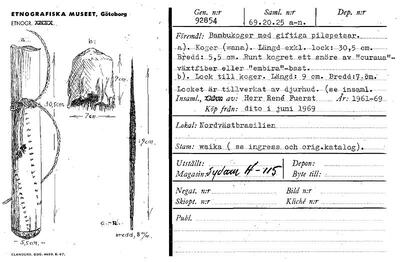 ETNOGRAFISKA MUSEET, Göteborg
ETNOGR.
a:
b:
30,5cm
7cm
19cm
5,5cm
bredd, 8 mm
Gen. n:r 92854
Saml. n:r 69.20.25 a-n.
Dep. n:r
Föremål: Bambukoger med giftiga pilspetsar.
a). Koger (wana). Längd exkl. lock: 30,5 cm.
Bredd: 5,5 cm. Runt kogret ett snöre av "curaua"-
växtfiber eller "embira"-bast.
b). Lock till koger. Längd: 9 cm. Bredd: 7 cm.
Locket är tillverkat av djurhud. (se insaml.
Insaml., av: Herr René Fuerst År: 1961-69
Köp från: dito i juni 1969
Lokal: Nordvästbrasilien
Stam: waika ( se ingress och orig.katalog).
Utställt:
Magasin: Sydam H-115
Depon:
Byte till:
Negat. n:r
Bild n:r
Skiopt. n:r
Kliché n:r
Publ.